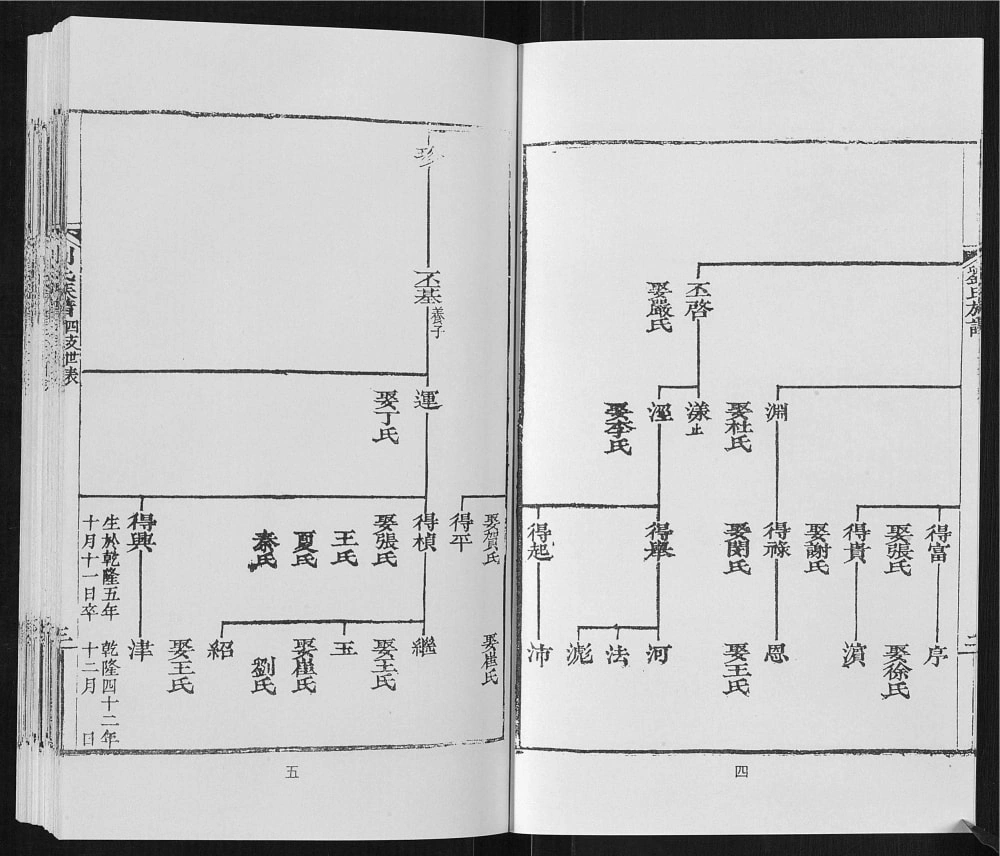 劉氏族譜
丕啓
娶嚴氏
淵
娶杜氏
漾止
溼
娶李氏
得富
娶張氏
得貴
娶謝氏
得祿
娶閔氏
得舉
得起
序
娶徐氏
濵
恩
娶王氏
河
法
沛
三
四
珍
丕基
養子
運
娶丁氏
娶賀氏
得平
得楨
娶張氏
王氏
夏氏
秦氏
得興
生於乾隆五年
十月十一日卒
乾隆四十二年
十二月 日
娶崔氏
繼
娶王氏
玉
娶崔氏
劉氏
紹
娶王氏
津
氏族譜
四支世表
三
五